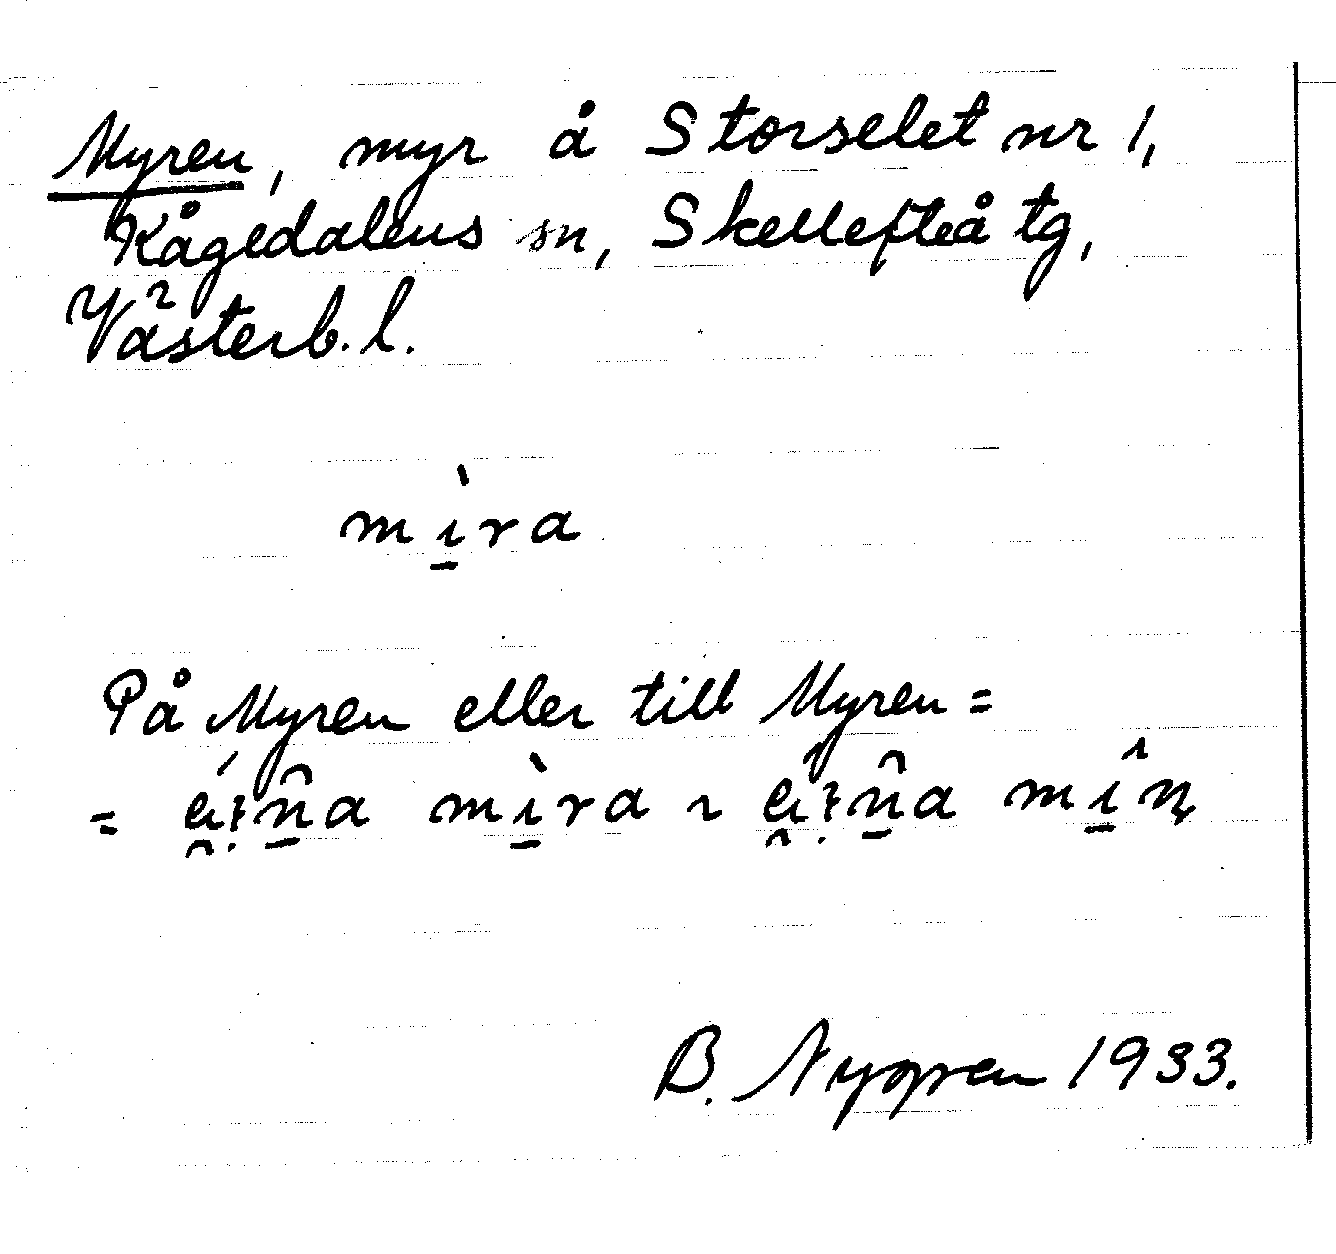 Myren, myr å Storselet nr 1,
Kågedalens sn, Skellefteå tg,
Västerb. l.
mı̱̀ra
På Myren eller till Myren =
= mı̱̀ra mı̱̂ɳ
B. Nygren 1933.